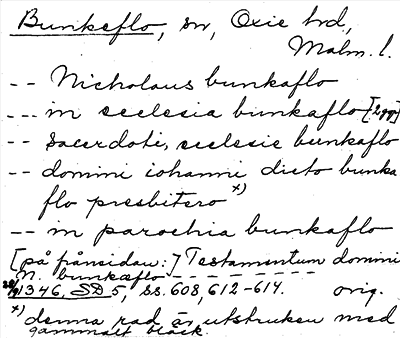 Bunkeflo, sn, Oxie hrd,
Malm. l.
-- Nicholaus bunkaflo
--- in ecclesia bunkaflo [2 ggr]
-- Sacerdoti, ecclesie bunkaflo
-- domini iohanni dicto bunka
flo presbitero x)
-- in parochia bunkaflo
[på frånsidan:] Testamentum domini
N. bunkæflo - - - - - - - -
1346, SD 5, ss. 608, 612-614. orig.
x) denna rad är utstruken med
gammalt bläck.